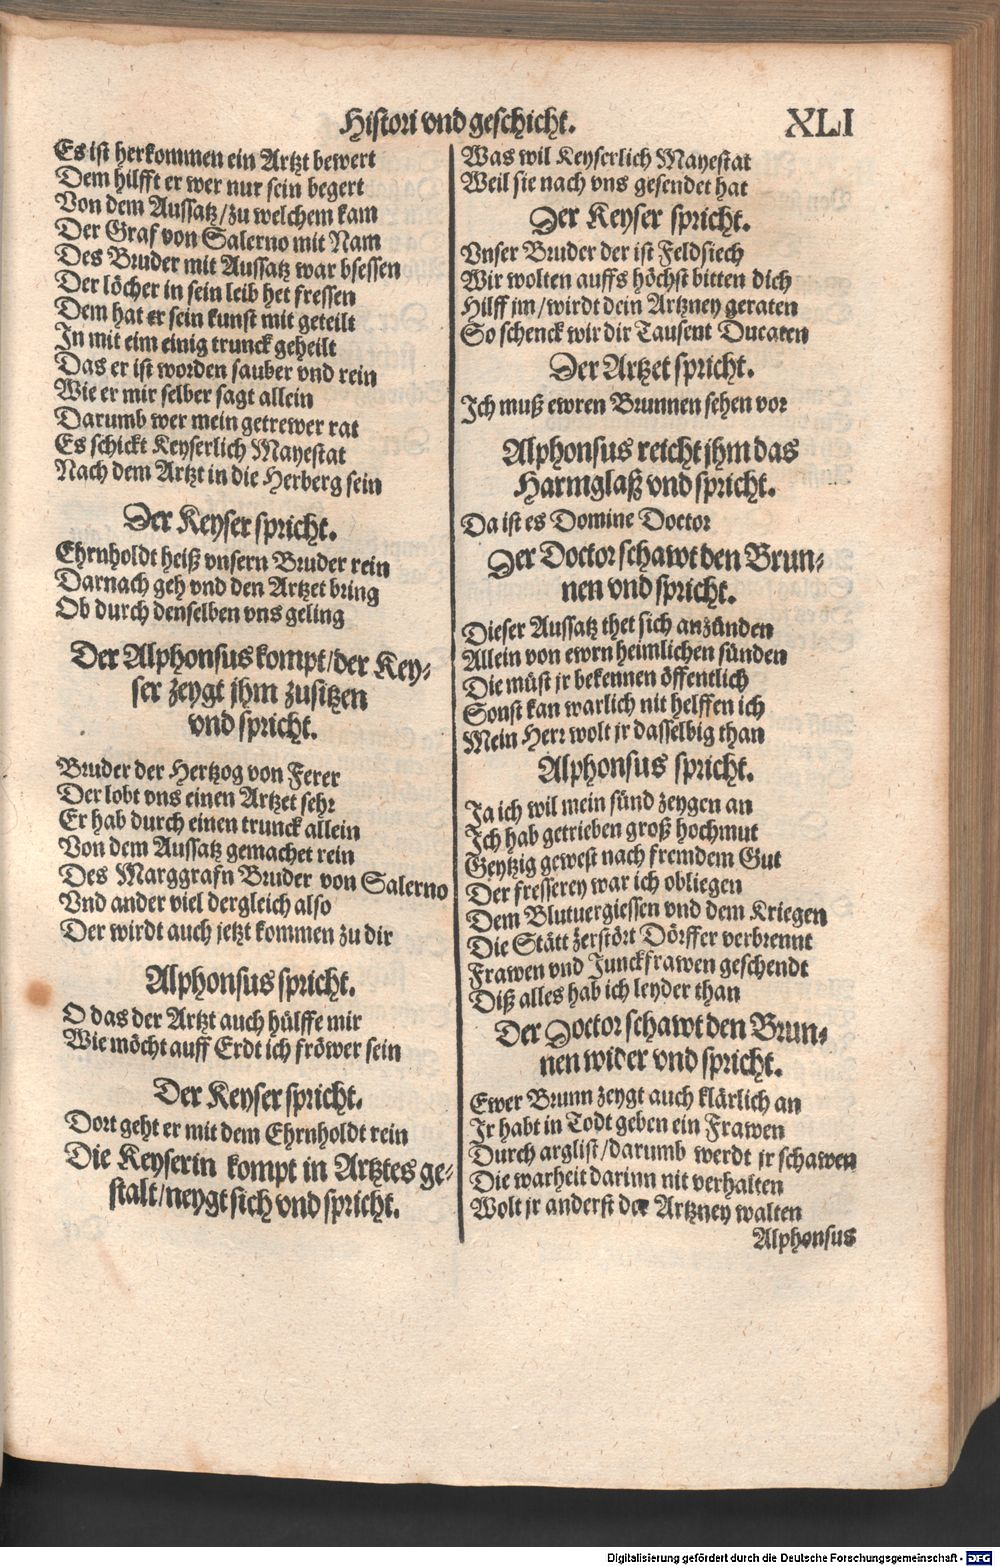 Histori vnd geschicht.
XLI
Es ist herkommen ein Artzt bewert
Dem hilfft er wer nur sein begert
Von dem Aussatz/zu welchem kam
Der Graf von Salerno mit Nam
Des Bruder mit Aussatz war bsessen
Der löcher in sein leib het fressen
Dem hat er sein kunst mit geteilt
In mit eim einig trunck geheilt
Das er ist worden sauber vnd rein
Wie er mir selber sagt allein
Darumb wer mein getrewer rat
Es schickt Keyserlich Mayestat
Nach dem Artzt in die Herberg sein
Der Keyser spricht.
Ehrnholdt heiß vnsern Bruder rein
Darnach geh vnd den Artzet bring
Ob durch denselben vns geling
Der Alphonsus kompt/der Key-
ser zeygt jhm zusitzen
vnd spricht.
Bruder der Hertzog von Ferer
Der lobt vns einen Artzet sehr
Er hab durch einen trunck allein
Von dem Aussatz gemachet rein
Des Marggrafn Bruder von Salerno
Vnd ander viel dergleich also
Der wirdt auch jetzt kommen zu dir
Alphonsus spricht.
O das der Artzt auch hülffe mir
Wie möcht auff Erdt ich fröwer sein
Der Keyser spricht.
Dort geht er mit dem Ehrnholdt rein
Die Keyserin kompt in Artztes ge-
stalt/neygt sich vnd spricht.
Was wil Keyserlich Mayestat
Weil sie nach vns gesendet hat
Der Keyser spricht.
Vnser Bruder der ist Feldsiech
Wir wolten auffs höchst bitten dich
Hilff jm/wirdt dein Artzney geraten
So schenck wir dir Tausent Ducaten
Der Artzet spricht.
Ich muß ewren Brunnen sehen vor
Alphonsus reicht jhm das
Harmglaß vnd spricht.
Da ist es Domine Doctor
Der Doctor schawt den Brun-
nen vnd spricht.
Dieser Aussatz thet sich anzünden
Allein von ewrn heimlichen sünden
Die müst jr bekennen öffentlich
Sonst kan warlich nit helffen ich
Mein Herr wolt jr dasselbig than
Alphonsus spricht.
Ja ich wil mein sünd zeygen an
Ich hab getrieben groß hochmut
Geytzig gewest nach fremdem Gut
Der fresserey war ich obliegen
Dem Blutuergiessen vnd dem Kriegen
Die Stätt zerstört Dörffer verbrennt
Frawen vnd Junckfrawen geschendt
Diß alles hab ich leyder than
Der Doctor schawt den Brun-
nen wider vnd spricht.
Ewer Brunn zeygt auch klärlich an
Jr habt in Todt geben ein Frawen
Durch arglist/darumb werdt jr schawen
Die warheit darinn nit verhalten
Wolt jr anderst der Artzney walten
Alphonsus
Digitalisierung gefördert durch die Deutsche Forschungsgemeinschaft - DFG